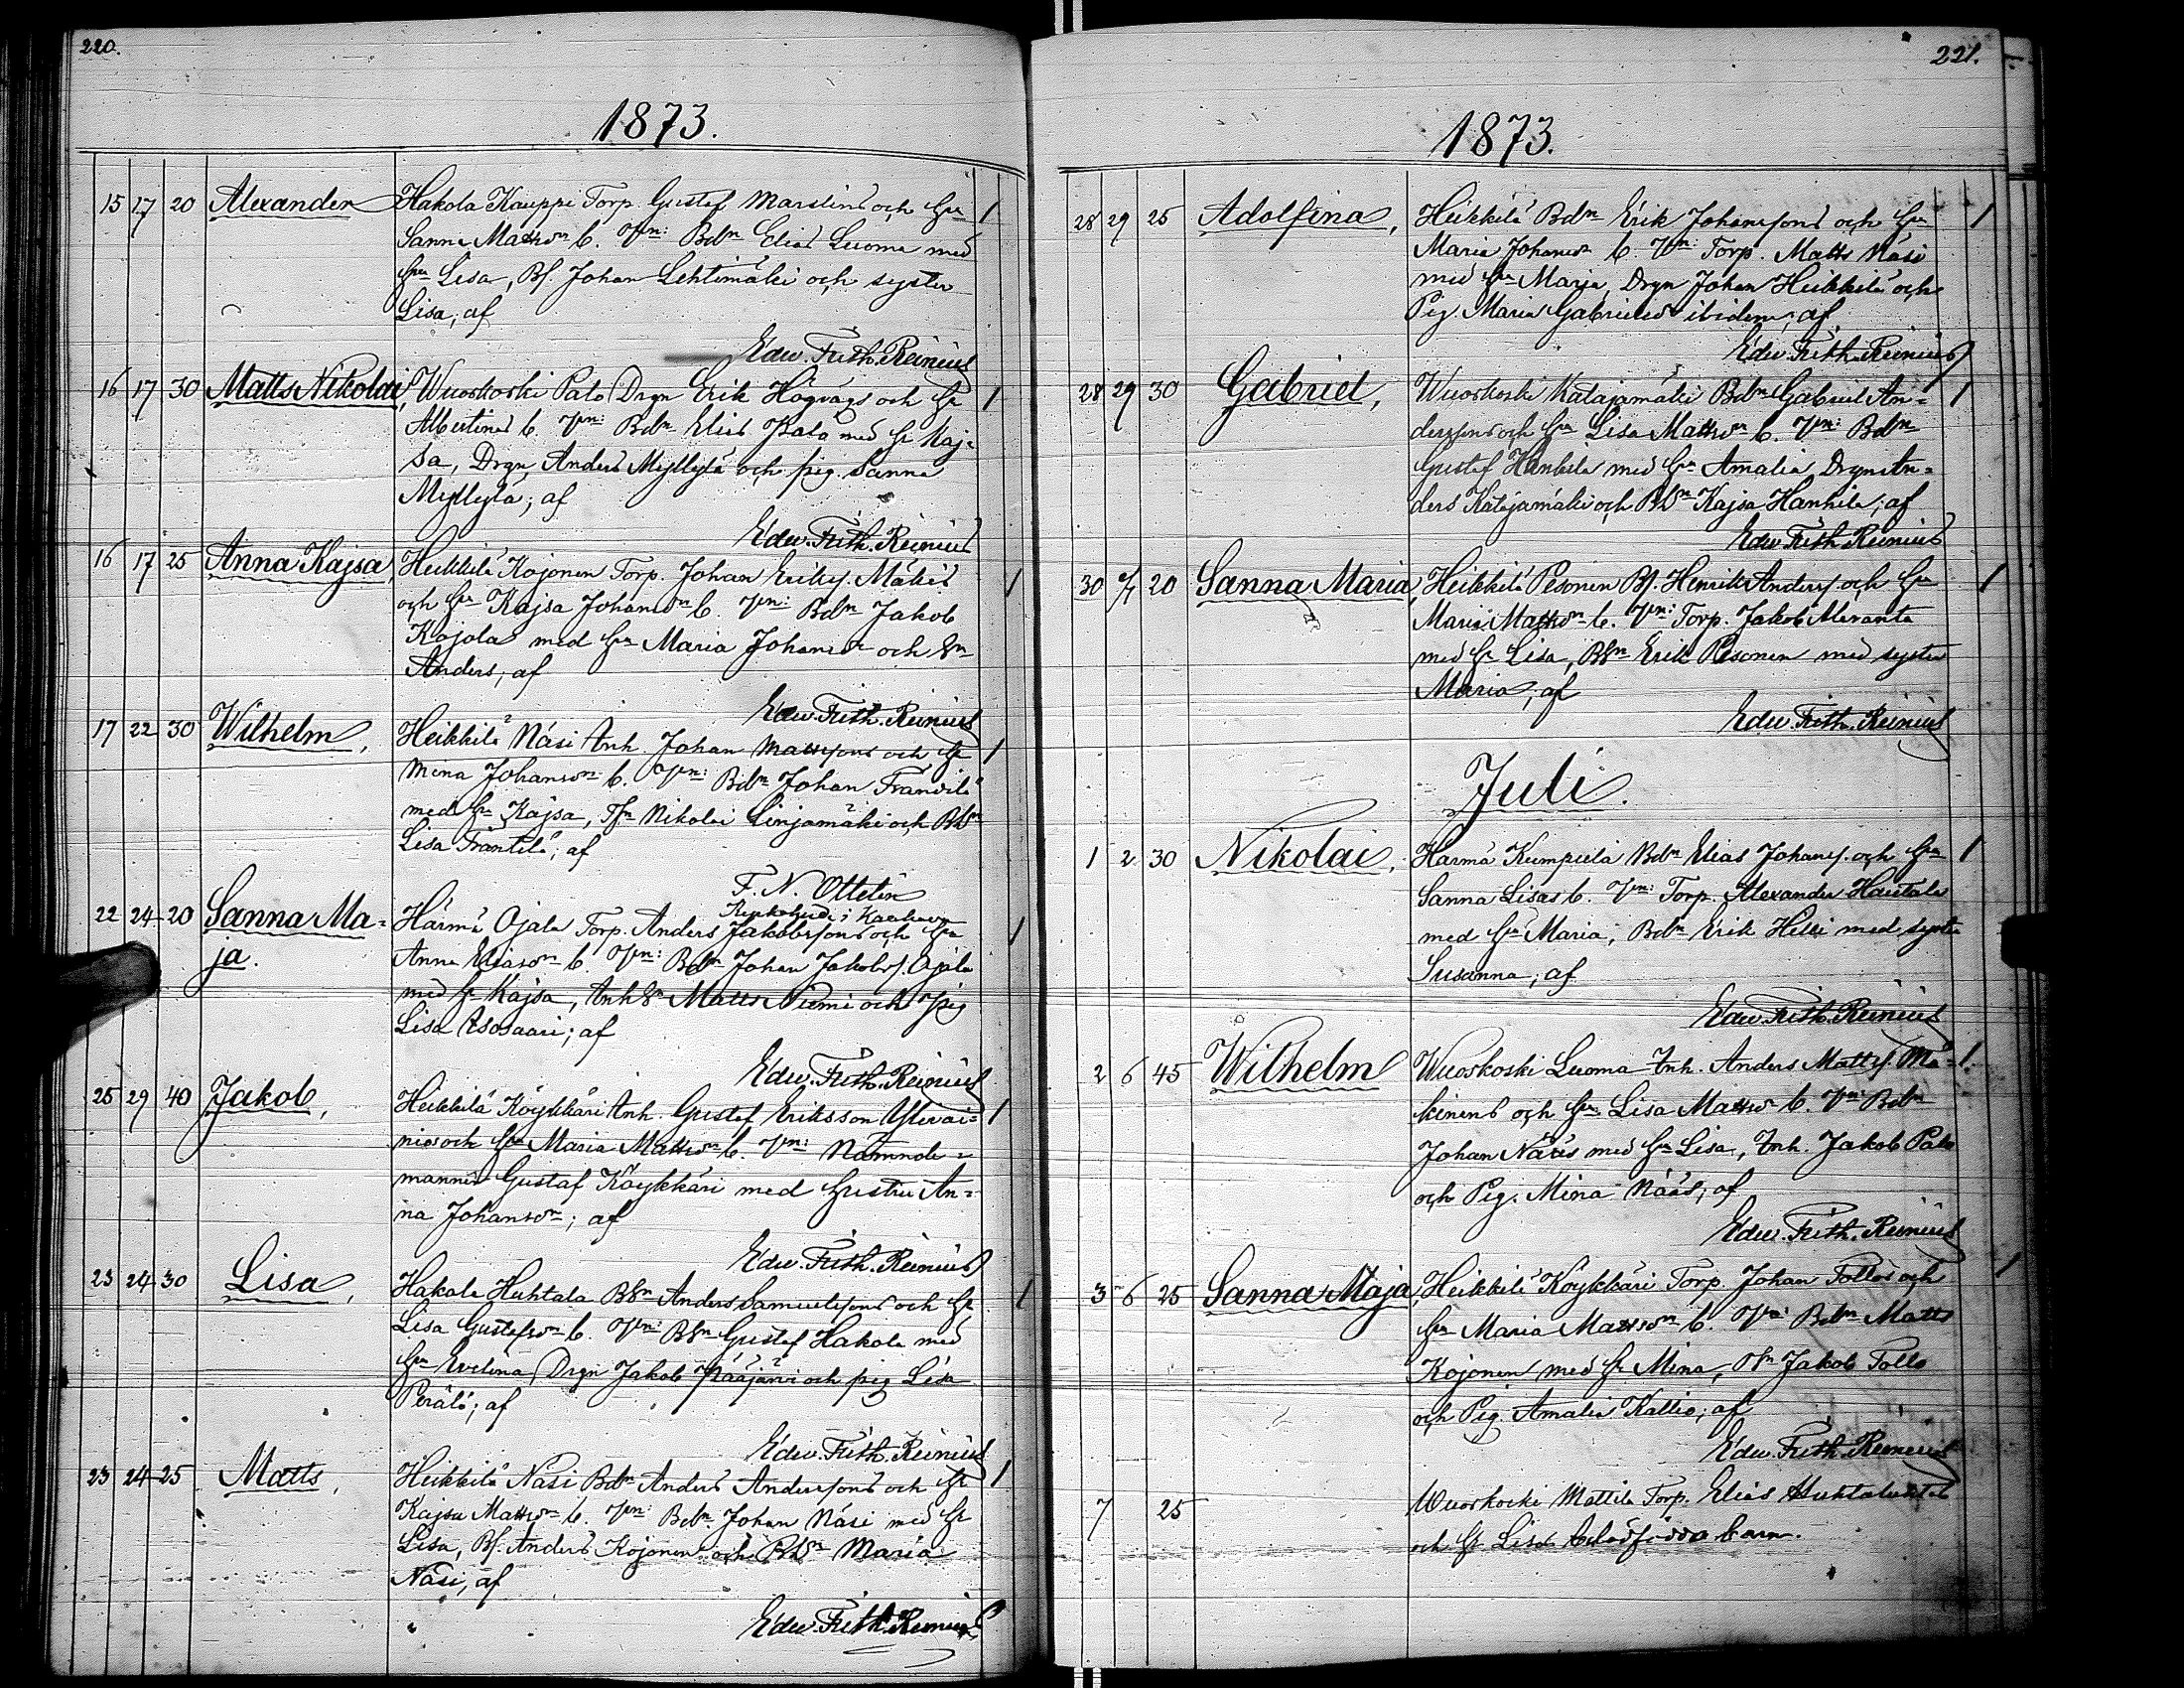 220.
1873.
15 17 20 Alexander Hakola Kauppi Torp. Gustaf Marslins och hu 1
Sanna Mattsdr C. Vn: Bdn Elias Luoma med
hu Lisa, Bs. Johan Lehtimäki och syster
Lisa; af
Edw. Frith. Reinius
16 17 30 Matts Nikolai, Wuoskoski Palo Drgn Erik Högvägs och hu 1
Albertinas C. Vn: Bdn Elias Palo med hu Kaj=
sa, Drgn Anders Myllylä och pig. Sanna
Myllylä; af
Edw. Frith. Reinius
16 17 25 Anna Kajsa, Heikkilä Kojonen Torp. Johan Eriks. Mäkis 1
och hu Kajsa Johansdr C. Vn: Bdn Jakob
Kojola med hu Maria Johansdr och Sn
Anders; af
Edw. Frith. Reinius
17 22 30 Wilhelm, Heikkilä Näsi Inh. Johan Mattssons och hu 1
Mina Johansdr C. Vn: Bdn Johan Trantilä
med hu Kajsa, Nikolai Linjamäki och Bdr
Lisa Trantilä; af
F. N. Ottelin
Kyrkoherde i Kauhava
22 24 20 Sanna Ma= Härmä Ojala Torp. Anders Jakobssons och hu 1
ja. Anna Eliasdr C. Vn: Bdn Johan Jakobs. Ojala
med hu Kajsa, Inh Sn Matts Niemi och pig
Lisa Isosaari; af
Edw. Frith. Reinius
25 29 40 Jakob, Heikkilä Köykkäri Inh. Gustaf Eriksson Ylivai= 1
nios och hu Maria Mattsdr C. Vn: Nämnde=
mannen Gustaf Köykkäri med hustru An=
na Johansdr; af
Edw. Frith. Reinius
23 24 30 Lisa, Hakola Huhtala BSn Anders Samuelssons och hu 1
Lisa Gustafsdr C. Vn: BSn Gustaf Hakola med
hu Evelina, Drgn Jakob Pääjärvi och pig Lisa
Perälä; af
Edw. Frith. Reinius
23 24 25 Matts, Heikkilä Näsi Bdn Anders Anderssons och hu 1
Kajsa Mattsdr C. Vn: Bdn Johan Näsi med hu
Lisa, Bs. Anders Kojonen och Bdr Maria
Näsi, af
Edw. Frith. Reinius
221.
1873.
28 29 25 Adolfina, Heikkilä Bdn Erik Johanssons och hu 1
Maria Johansdr C. Vn: Torp. Matts Näsi
med hu Maria, Drgn Johan Heikkilä och
Pig. Maria Gabrielsdr ibidem; af
Edw. Frith. Reinius
28 29 30 Gabriel, Wuoskoski Katajamäki Bdn Gabriel An= 1
derssons och hu Lisa Mattsdr C. Vn: Bdn
Gustaf Hanhila med hu Amalia, Drgn An=
ders Katajamäki och Bdr Kajsa Hanhila; af
Edw. Frith. Reinius
30 6/7 20 Sanna Maria, Heikkilä Pesonen Bs. Henrik Anders. och hu 1
Maria Mattsdr C. Vn: Torp. Jakob Alaranta
med hu Lisa, BSn Erik Pesonen med syster
Maria; af
Edw. Frith. Reinius
Juli.
1 2 30 Nikolai, Härmä Kumpula Bdn Elias Johans. och hu 1
Sanna Lisas C. Vn: Torp. Alexander Hautala
med hu Maria, Bdn Erik Heikki med syster
Susanna; af
Edw. Frith. Reinius
2 6 45 Wilhelm Wuoskoski Luoma Inh. Anders Matts. Mä= 1.
kinens och hu Lisa Mattsdr C. Vn Bdn
Johan Nääs med hu Lisa, Inh. Jakob Palo
och Pig. Mina Nääs; af
Edw. Frith. Reinius
3 6 25 Sanna Maja, Heikkilä Köykkäri Torp. Johan Tollos och 1
hu Maria Mattsdr C. Vn: Bdn Matts
Kojonen med hu Mina, Sn Jakob Tollo
och Pig. Amalia Kallio; af
Edw. Frith. Reinius
7 25 Wuoskoski Mattila Torp. Elias
och hu Lisas dödfödda barn.